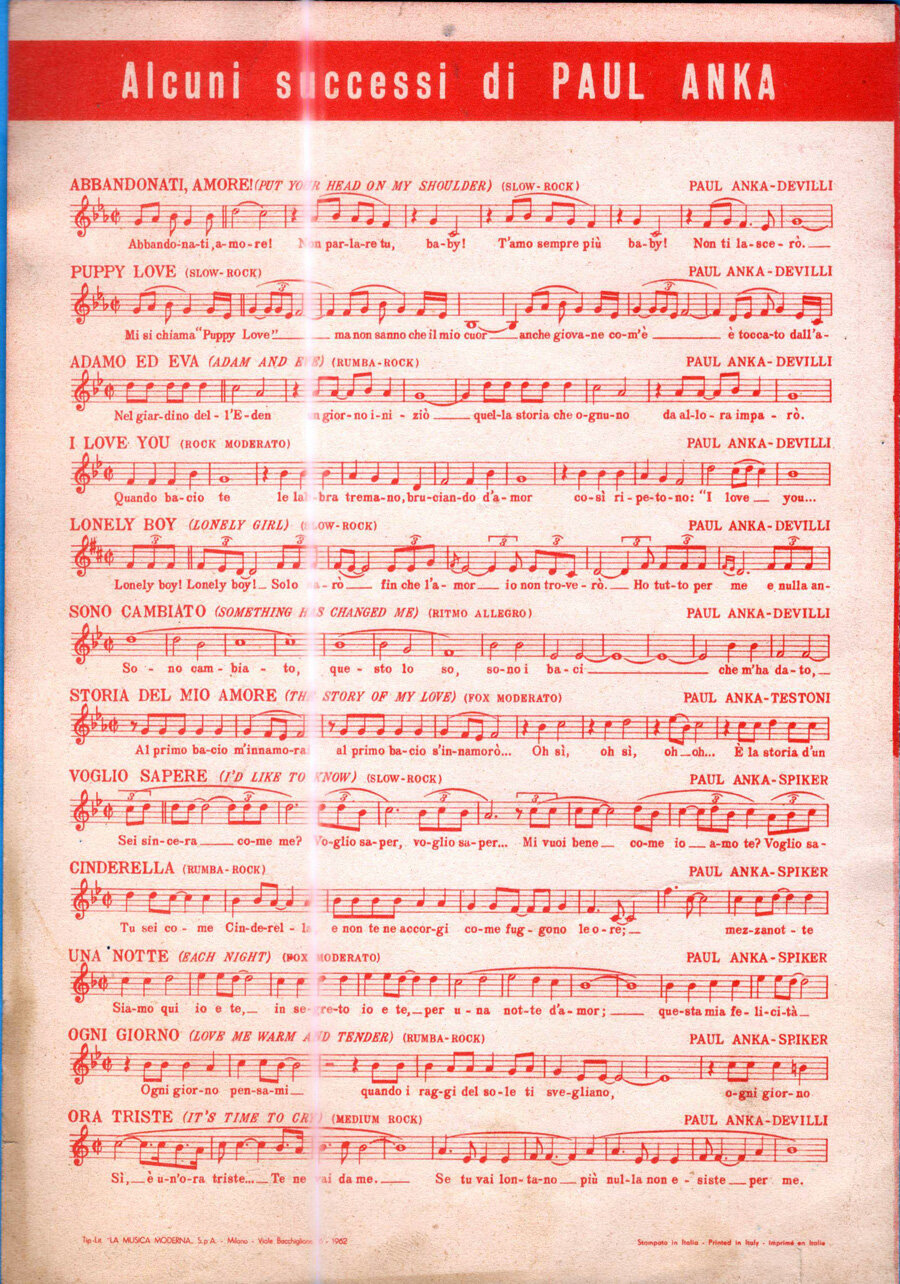 Alcuni successi di PAUL ANKA
ABBANDONATI, AMORE! (PUT YOUR HEAD ON MY SHOULDER) (SLOW-ROCK) PAUL ANKA-DEVILLI
Abbando-na-ti, a-mo-re! Non par-la-re tu, ba-by! T'amo sempre più ba-by! Non ti la-sce-rò.
PUPPY LOVE (SLOW-ROCK) PAUL ANKA-DEVILLI
Mi si chiama "Puppy Love" ma non sanno che il mio cuor anche giova-ne co-m'è è tocca-to dall'a-
ADAMO ED EVA (ADAM AND EVE) (RUMBA-ROCK) PAUL ANKA-DEVILLI
Nel giar-dino del-l'E-den un gior-no i-ni-ziò quel-la storia che o-gnu-no da al-lo-ra impa-rò.
I LOVE YOU (ROCK MODERATO) PAUL ANKA-DEVILLI
Quando ba-cio te le lab-bra trema-no, bru-cian-do d'a-mor co-sì ri-pe-to-no: "I love you...
LONELY BOY (LONELY GIRL) (SLOW-ROCK) PAUL ANKA-DEVILLI
Lonely boy! Lonely boy! Solo sa-rò fin che l'a-mor io non tro-ve-rò. Ho tut-to per me e nulla an-
SONO CAMBIATO (SOMETHING HAS CHANGED ME) (RITMO ALLEGRO) PAUL ANKA-DEVILLI
So-no cam-bia-to, que-sto lo so, so-no i ba-ci che m'ha da-to,
STORIA DEL MIO AMORE (THE STORY OF MY LOVE) (FOX MODERATO) PAUL ANKA-TESTONI
Al primo ba-cio m'innamora al primo ba-cio s'in-namorò... Oh sì, oh sì, oh oh... È la storia d'un
VOGLIO SAPERE (I'D LIKE TO KNOW) (SLOW-ROCK) PAUL ANKA-SPIKER
Sei sin-ce-ra co-me me? Voglio sa-per, vo-glio sa-per... Mi vuoi bene co-me io a-mo te? Voglio sa-
CINDERELLA (RUMBA-ROCK) PAUL ANKA-SPIKER
Tu sei co-me Cin-de-rel-la e non te ne accor-gi co-me fug-gono le o-re; mez-zanot-te
UNA NOTTE (EACH NIGHT) (FOX MODERATO) PAUL ANKA-SPIKER
Sia-mo qui io e te, in se-gre-to io e te, per u-na not-te d'a-mor; que-sta mia fe-li-ci-tà
OGNI GIORNO (LOVE ME WARM AND TENDER) (RUMBA-ROCK) PAUL ANKA-SPIKER
Ogni gior-no pen-sa-mi quando i rag-gi del so-le ti sve-gliano, o-gni gior-no
ORA TRISTE (IT'S TIME TO CRY) (MEDIUM ROCK) PAUL ANKA-DEVILLI
Sì, è u-n'o-ra triste... Te ne vai da me. Se tu vai lon-ta-no più nul-la non e-siste per me.
Tip-Lit. "LA MUSICA MODERNA" S.p.A. - Milano - Viale Bacchiglione - 1962 Stampato in Italia - Printed in Italy - Imprimé en Italie